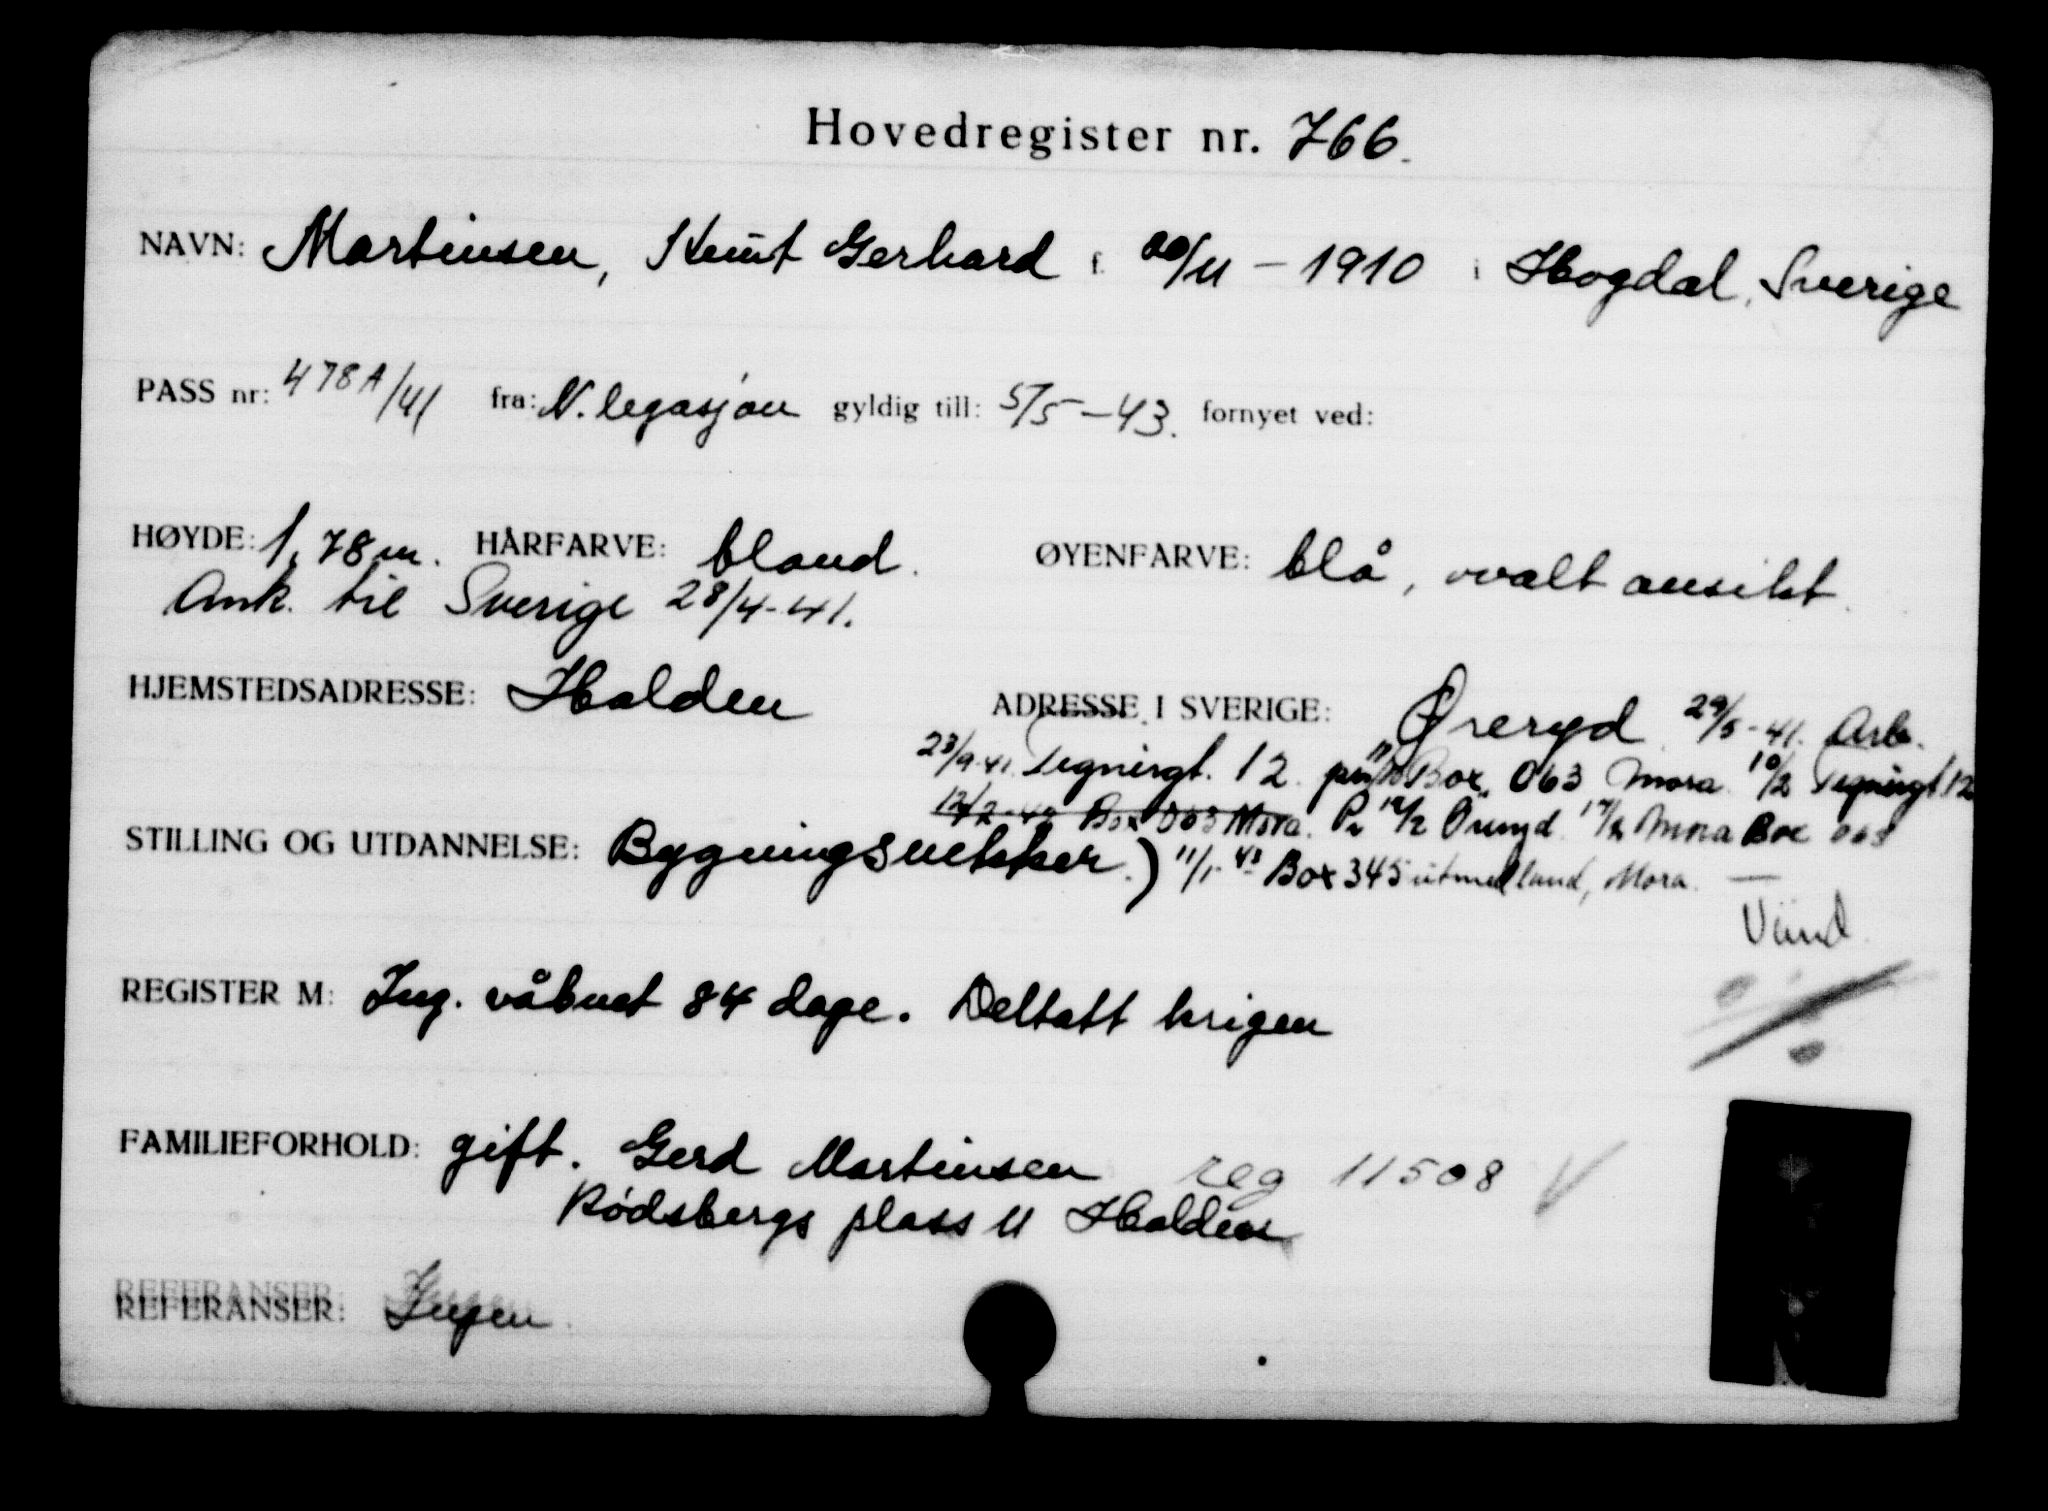 Hovedregister nr. 766.
NAVN: Martinsen, Knut Gerhard f. 20/11 - 1910 i Hogdal, Sverige
PASS nr: 478A/41 fra: N. legasjon gyldig till: 5/5-43. fornyet ved:
HØYDE: 1,78 m. HÅRFARVE: blond. ØYENFARVE: blå, ovalt ansikt.
Ank. til Sverige 28/4-41.
HJEMSTEDSADRESSE: Halden ADRESSE I SVERIGE: Øreryd 29/5-41. Arb.
23/9-41. Tegnérgt. 12. Box 063 Mora 10/2 Tegnérgt 12
12/2-42 Box 063 Mora. Mora Box 063
STILLING OG UTDANNELSE: Bygningssnekker.) 11/1-43 Box 345 utmelland, Mora.
Vänd
REGISTER M: Ing. våbnet 84 dage. Deltatt krigen
FAMILIEFORHOLD: gift. Gerd Martinsen reg 11508 V
Rødsbergs plass 11 Halden
REFERANSER: Ingen